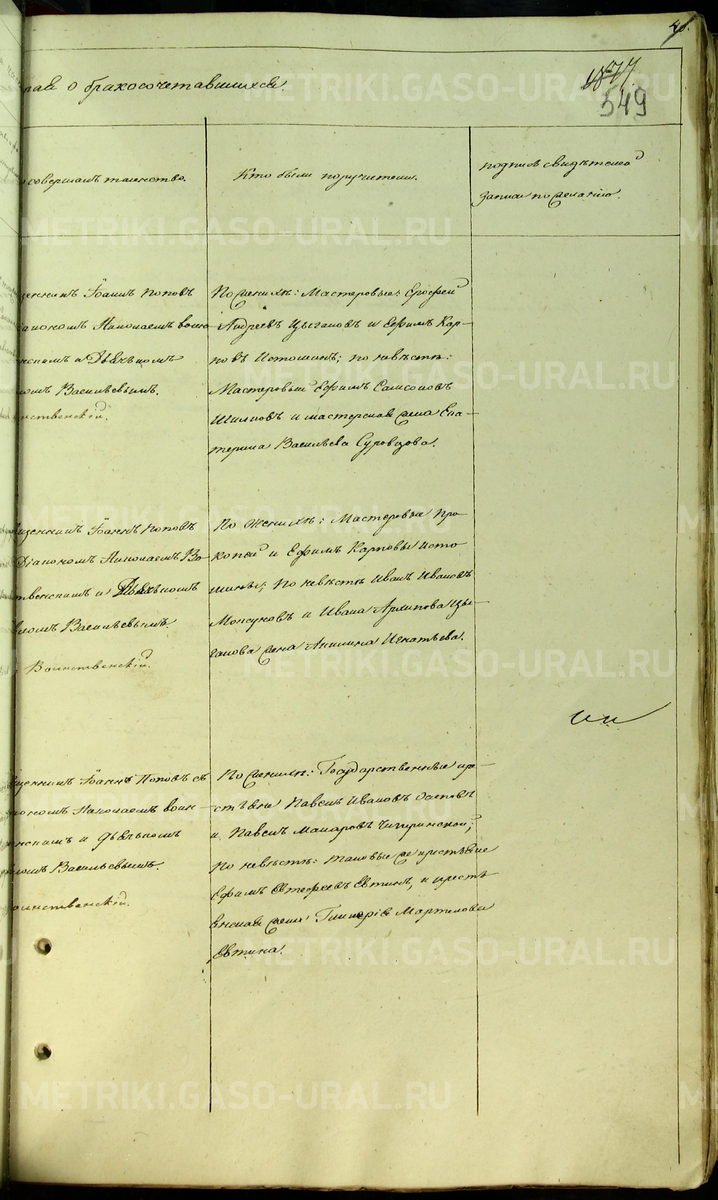 549
рая о бракосочетавшихся.
совершалъ таинство.
Кто были поручители.
подпись свидѣтелей
записи по желанію.
METRIKI.GASO-URAL.RU
щенникъ Іоаннъ Поповъ
іакономъ Николаемъ воин
и Дьячкомъ
Васильевымъ.
инственскій.
По женихѣ: Мастеровые: Ерофей
Андреевъ Цыгановъ и Ефимъ Кар
повъ Истоминъ; по невѣстѣ:
Мастеровый Ефимъ Самсоновъ
Шиловъ и мастерская жена Ека
терина Васильева Суровцова.
щенникъ Іоаннъ Поповъ
Діакономъ Николаемъ Во
инственскимъ и Дьячкомъ
Васильевымъ
Воинственскій.
По Женихѣ: Мастеровые Про
копей и Ефимъ Карповы Исто
мины; По невѣстѣ Иванъ Ивановъ
и Ивана Архипова Цы
ганова жена Акилина Игнатьева.
щенникъ Іоаннъ Поповъ съ
іакономъ Николаемъ воин
и дьячкомъ
Васильевымъ.
инственскій.
По женихѣ: Государственные кре
стьяне Павелъ Ивановъ Осиповъ
и Павелъ Макаровъ Чигиринской;
По невѣстѣ: Таковые же крестьяне
Ефимъ Евтинъ, и кресть
янская жена Мартинова
Евтина.